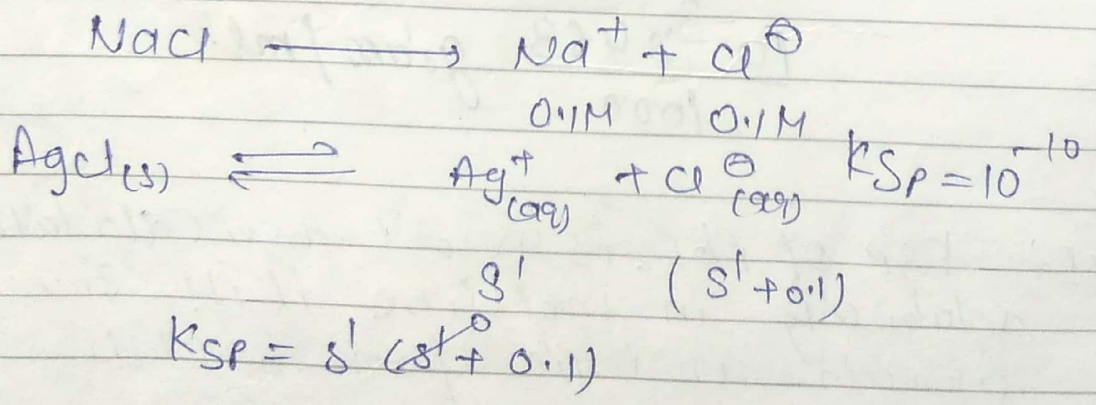 NaCl ⟶ Na⁺ + Cl⊖
0.1M 0.1M
AgCl(s) ⇌ Ag⁺(aq) + Cl⊖(aq) KSp = 10⁻¹⁰
S' (S' + 0.1)
KSP = S' (S'⁰ + 0.1)